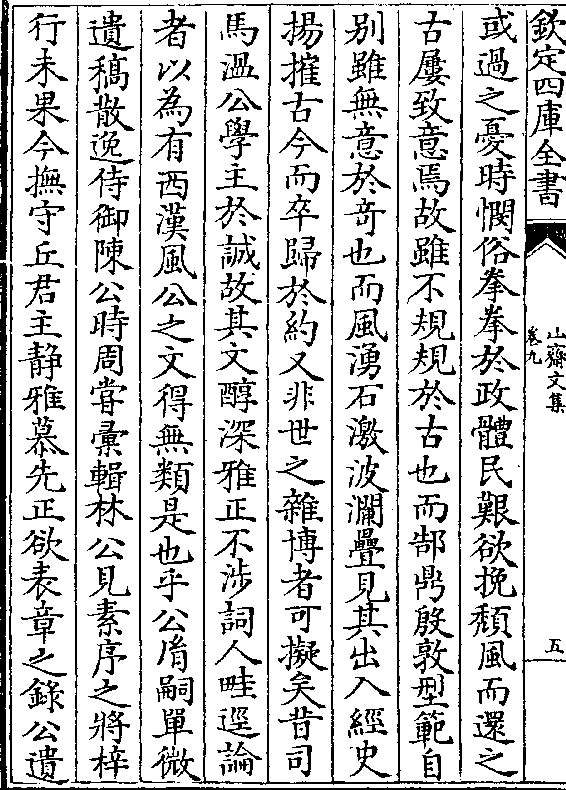 欽定四庫全書
山齋文集
卷九
五
或過之憂時憫俗拳拳於政體民艱欲挽頹風而還之
古屢致意焉故雖不規規於古也而郜鼎殷敦型範自
别雖無意於竒也而風湧石激波瀾疊見其出入經史
揚搉古今而卒歸於約又非世之雜博者可擬矣昔司
馬溫公學主於誠故其文醇深雅正不涉詞人畦逕論
者以為有西漢風公之文得無類是也乎公胤嗣單微
遺稿散逸侍御陳公時周甞彚輯林公見素序之將梓
行未果今撫守丘君主静雅慕先正欲表章之錄公遺